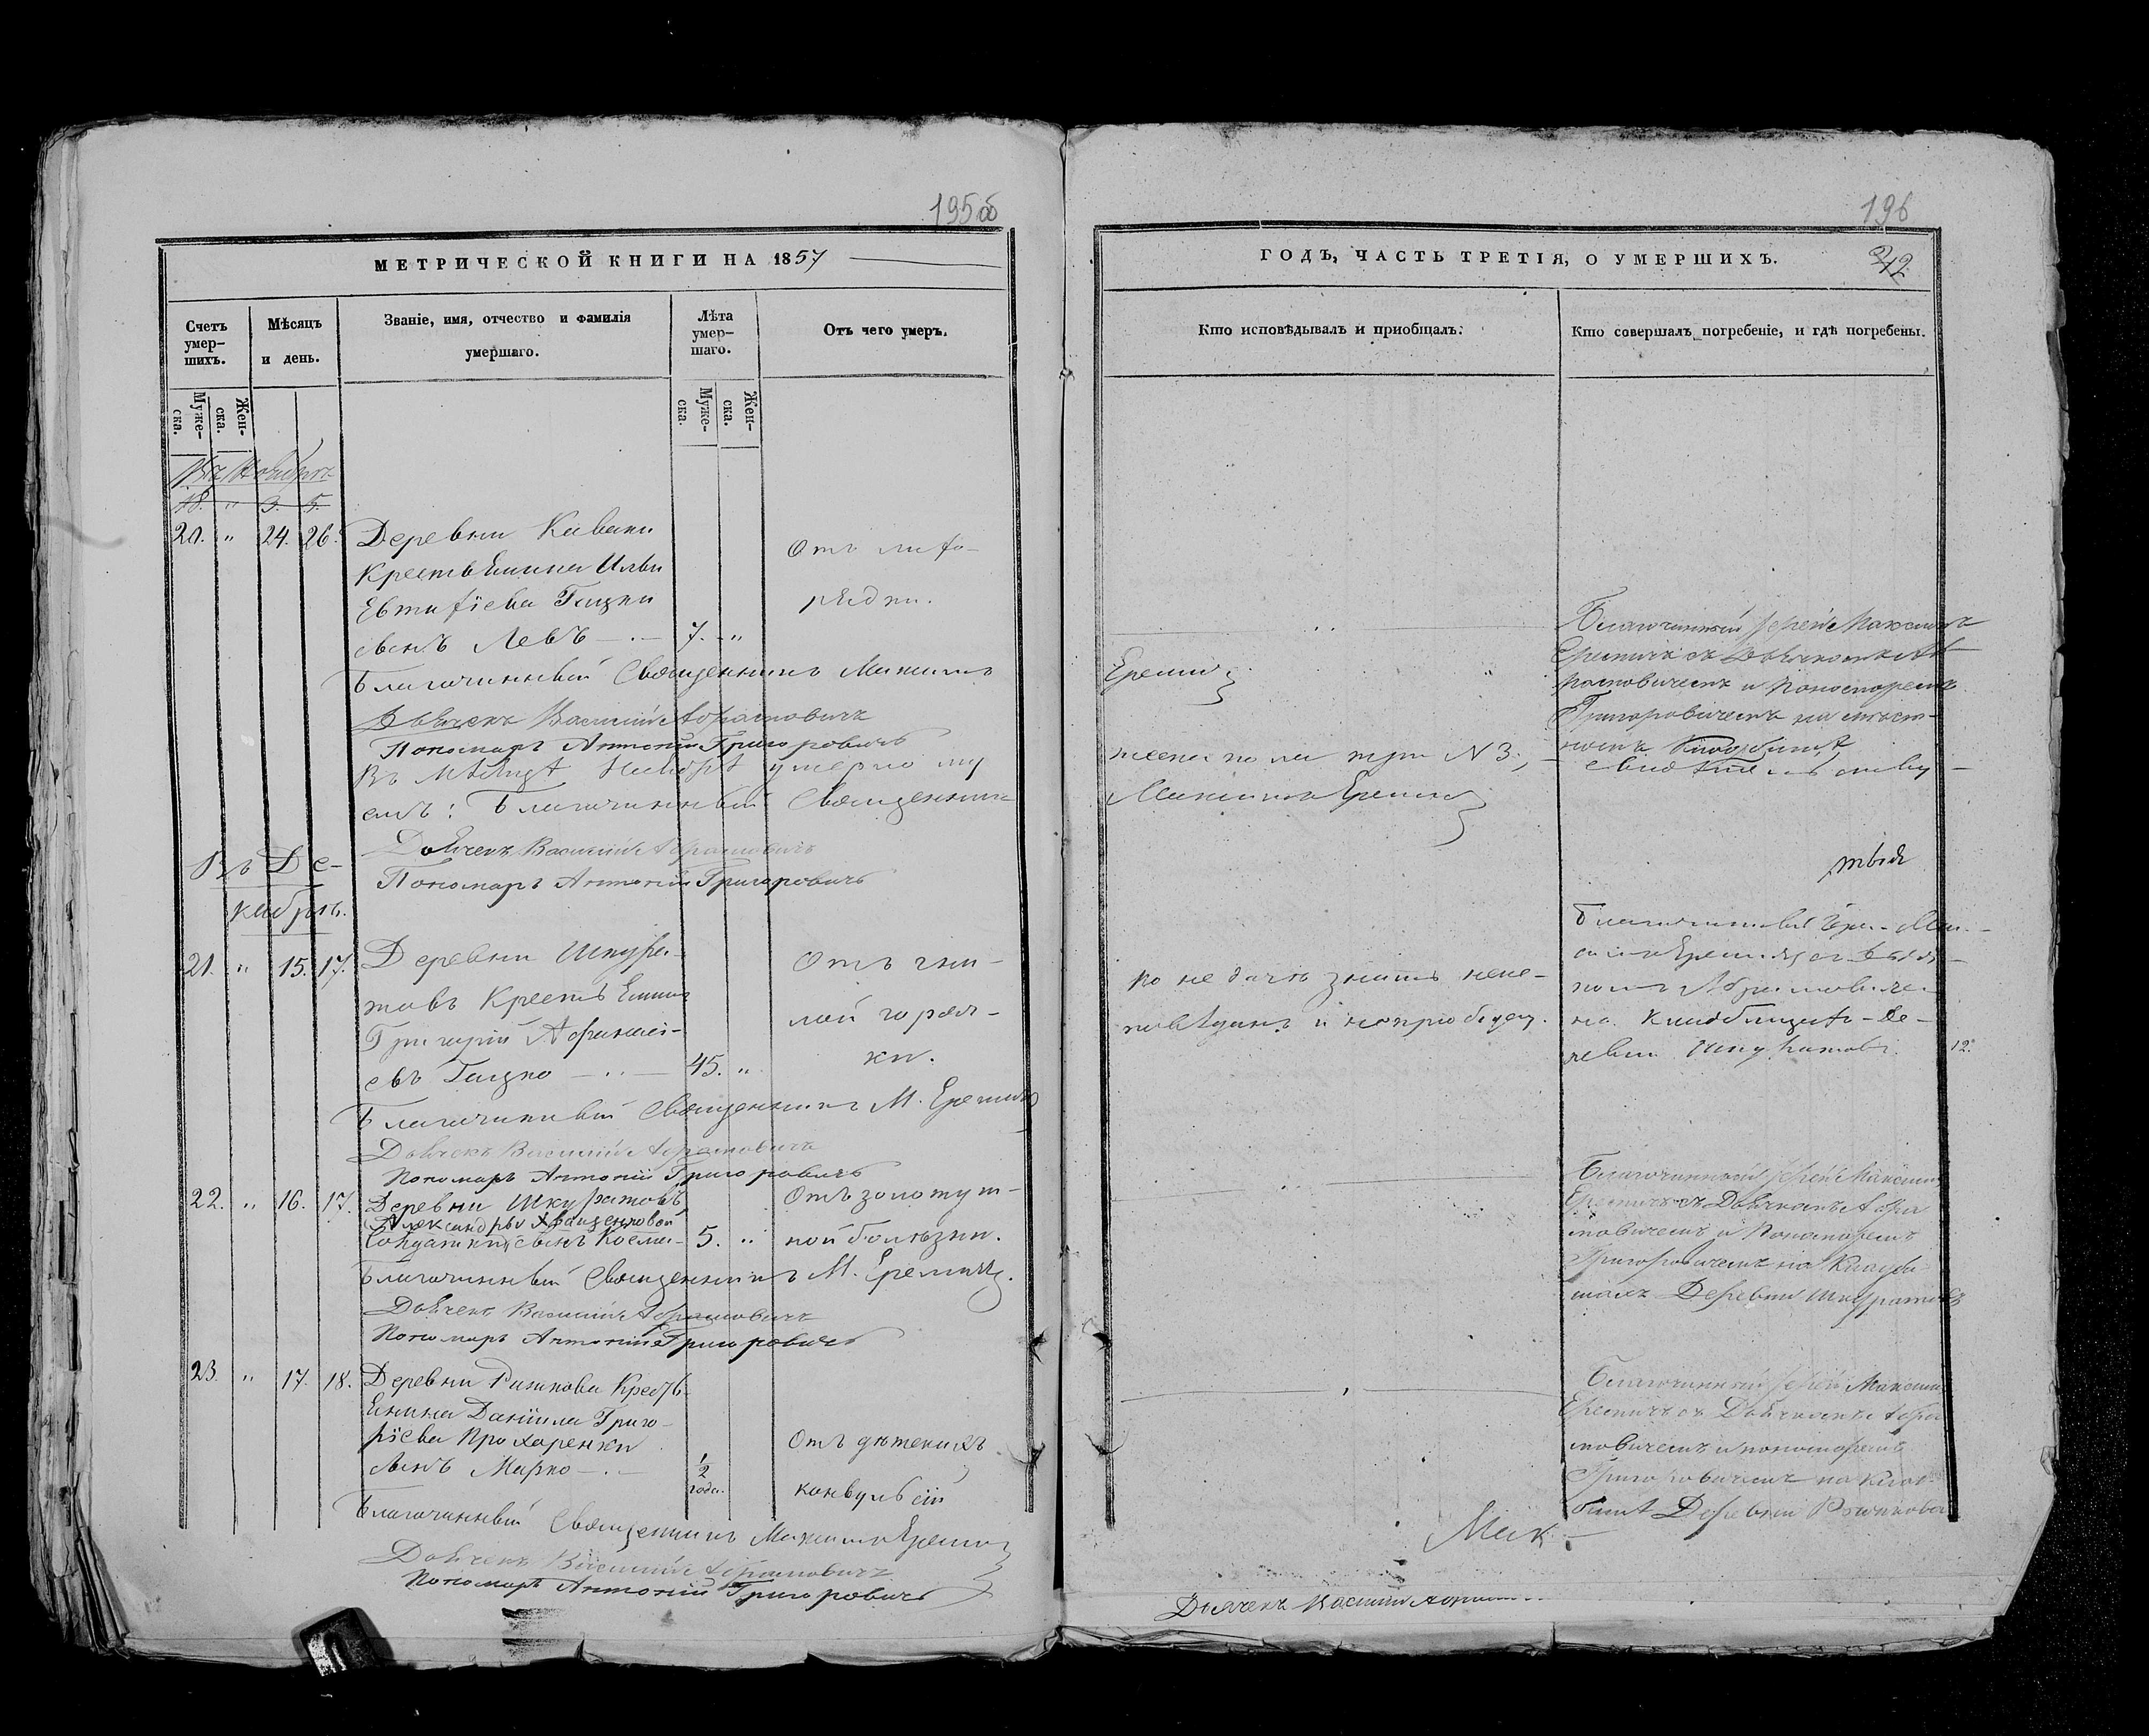 195об
МЕТРИЧЕСКОЙ КНИГИ НА 1857
Счетъ умер-шихъ.
Мѣсяцъ и день.
Званіе, имя, отчество и фамилія умершаго.
Лѣта умер-шаго.
Отъ чего умеръ.
Муже-ска.
Жен-ска.
Муже-ска.
Жен-ска.
Въ Ноябрѣ
18. " 3. 5.
20. " 24. 26. Деревни
Крестьянина Ильи
Евтифіева Гацки
сынъ Левъ 7. "
Отъ лихо-
радки.
Благочинный Священникъ Максимъ
Дьячекъ Василій Абрамовичъ
Пономарь Антоній Григоровичъ
Въ Мѣсяцѣ Ноябрѣ умерло му
емъ: Благочинный Священник
Дьячекъ Василій Абрамовичъ
Пономарь Антоній Григоровичъ
Въ Де-
кабрѣ.
21. " 15. 17. Деревни Шкура-
товъ Крестьянинъ
Григорій Афанасі-
евъ Гацко 45. "
Отъ гни-
лой горяч-
ки.
Благочинный Священникъ М. Еремичъ
Дьячекъ Василій Абрамовичъ
Пономарь Антоній Григоровичъ
22. " 16. 17. Деревни Шкуратовъ
Александры
Солдатки сынъ Косма 5. "
Отъ золотуш-
ной болѣзни.
Благочинный Священникъ М. Еремичъ.
Дьячекъ Василій Абрамовичъ
Пономарь Антоній Григоровичъ
23. " 17. 18. Деревни Рижкова Кресть-
янина Даніила Григо-
ріева Прохаренки
сынъ Марко 1/2 года.
Отъ дѣтскихъ
конвульсій
Благочинный Священникъ Максимъ Еремичъ
Дьячекъ Василій Абрамовичъ
Пономарь Антоній Григоровичъ
196
ГОДЪ, ЧАСТЬ ТРЕТІЯ, О УМЕРШИХЪ.
212
Кто исповѣдывалъ и приобщалъ.
Кто совершалъ погребеніе, и гдѣ погребены.
Благочинный Іерей Максимъ
Еремичъ съ Дьячкомъ Аб
рамовичемъ и Пономаремъ
Григоровичемъ на мѣст-
номъ Кладбищѣ
Еремичъ
жеска пола три N 3.,
свидѣтельству
Максимъ Еремичъ
твуя
Благочинный Іерей Мак-
симъ Еремичъ съ Дьяч-
комъ Абрамовичемъ
на Кладбищѣ Де-
ревни Шкуратовъ. 12.
по не дачѣ знать неис-
повѣданъ и непріобщен.
Благочинный Іерей Максим
Еремичъ съ Дьячкомъ Абра
мовичемъ и Пономаремъ
Григоровичемъ на Кладби
щахъ Деревни Шкуратовъ
Благочинный Іерей Максим
Еремичъ съ Дьячкомъ Абра
мовичемъ и пономаремъ
Григоровичемъ на клад
бищѣ Деревни Рижкова
Мак-
Дьячекъ Василій